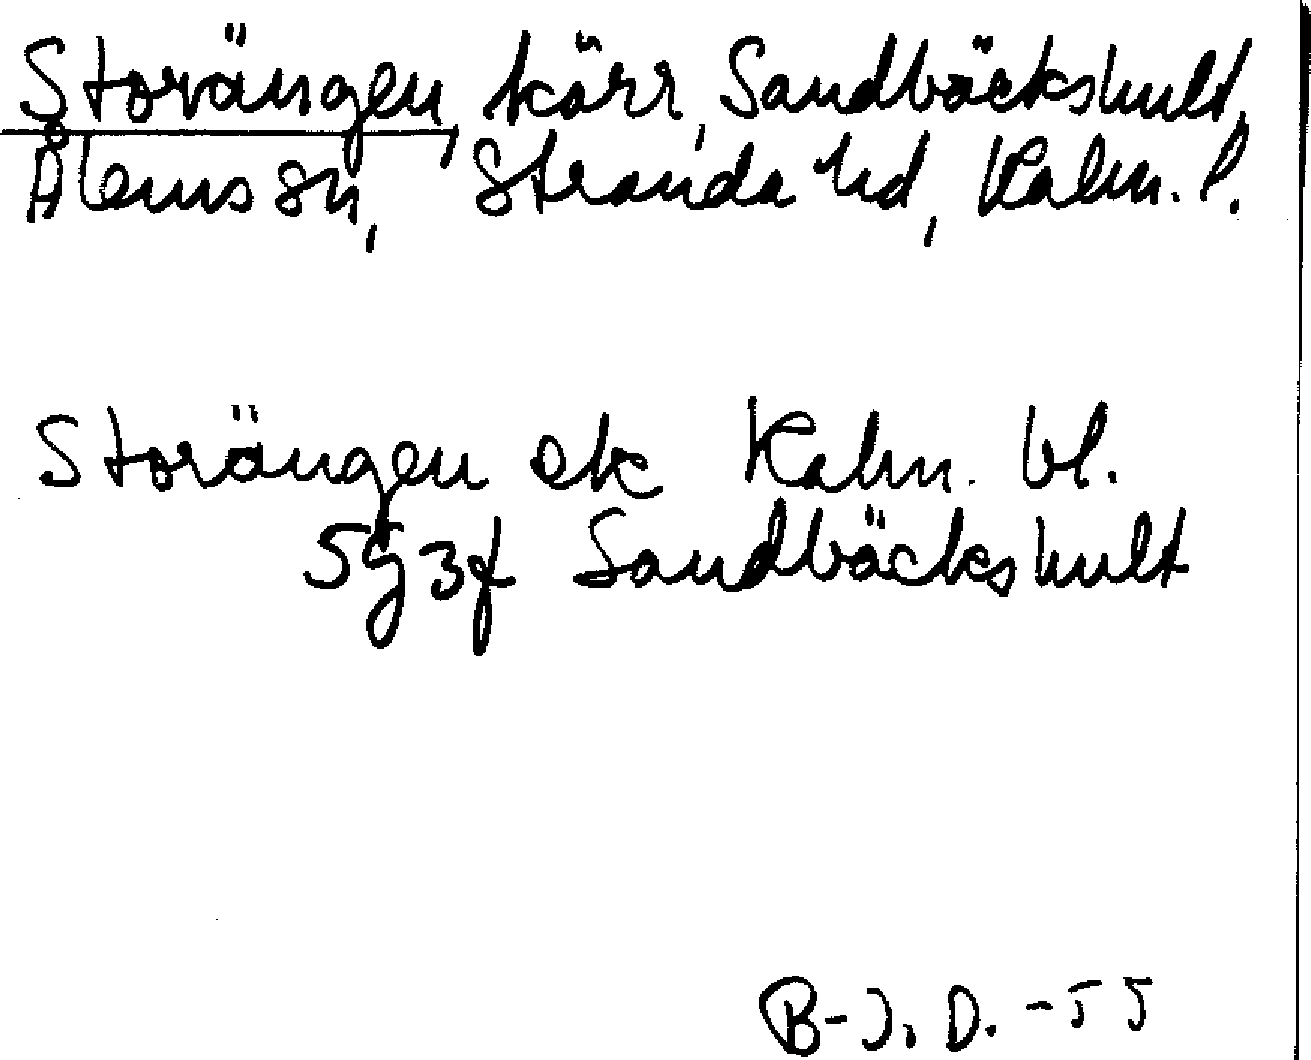 Storängen, kärr, Sandbäckshult,
Ålems sn, Stranda hd, Kalm. l.
Storängen ek Kalm. bl.
5g3f Sandbäckshult
B-J. D. -55